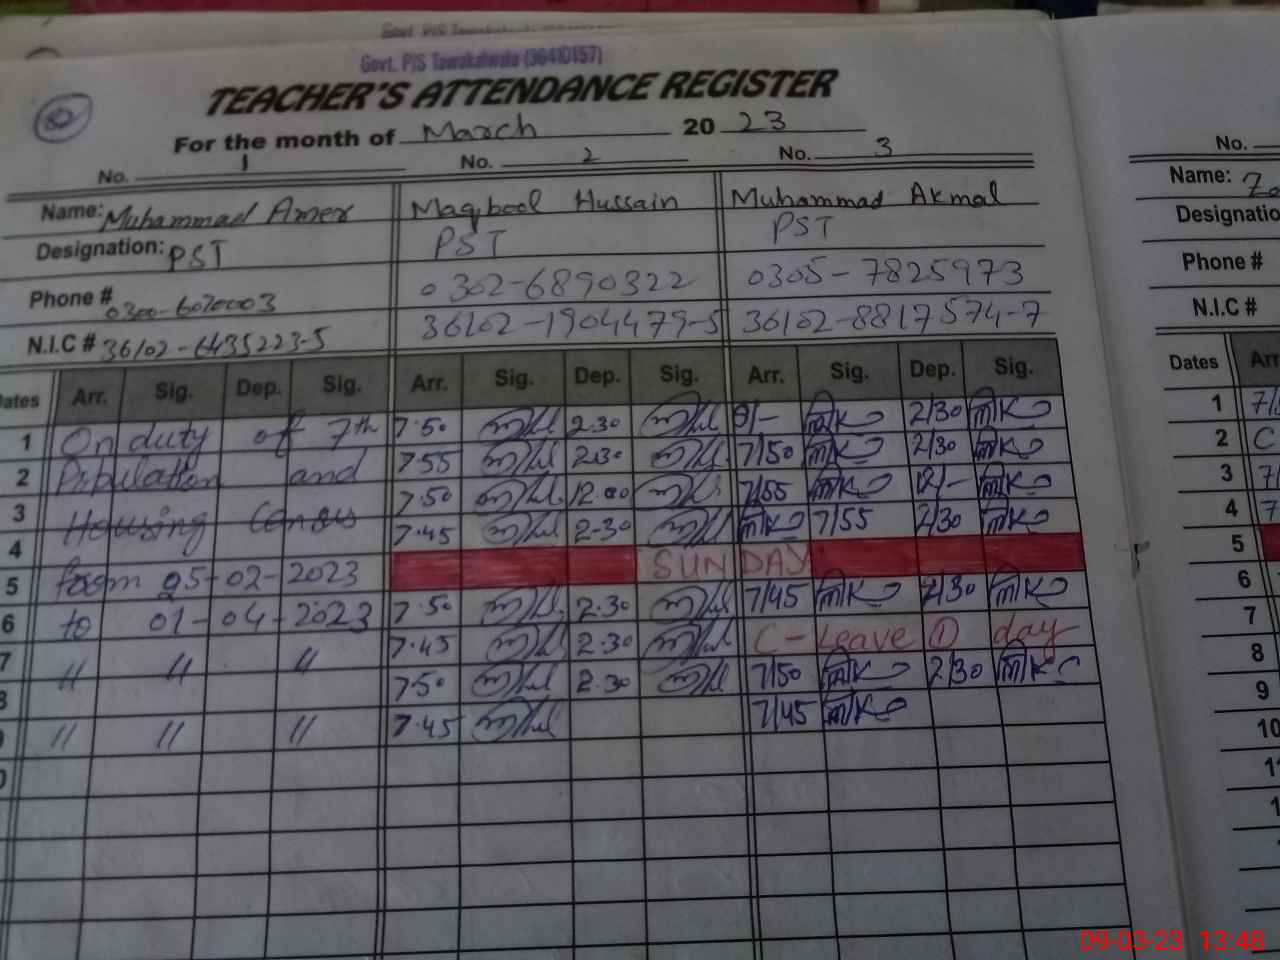 Govt. P/S Tawakalwala (36410157)
82
TEACHER'S ATTENDANCE REGISTER
For the month of March 2023
No. 1 No. 2 No. 3 No.
Name: Muhammad Amer Maqbool Hussain Muhammad Akmal Name:
Designation: PST PST PST Designatio
Phone # 0300-6020003 0302-6890322 0305-7825973 Phone #
N.I.C # 36102-6435223-5 36102-1904479-5 36102-8817574-7 N.I.C #
Dates Arr. Sig. Dep. Sig. Arr. Sig. Dep. Sig. Arr. Sig. Dep. Sig. Dates Arr
1 On duty of 7th 7.50 2.30 9/- 2/30 1 7/
2 Population and 7.55 2.30 7/50 2/30 2 C
3 Housing Census 7.50 12.00 7/55 12/- 3 7/
4 7.45 2-30 7/55 2/30 4 7
5 from 05-02-2023 SUNDAY 5
6 to 01-04-2023 7.50 2.30 7/45 2/30 6
7 " " " 7.45 2.30 C-Leave 1 day 7
8 7.50 2.30 7/50 2/30 8
9 " " " 7.45 7/45 9
10
11
09-03-23 13:48